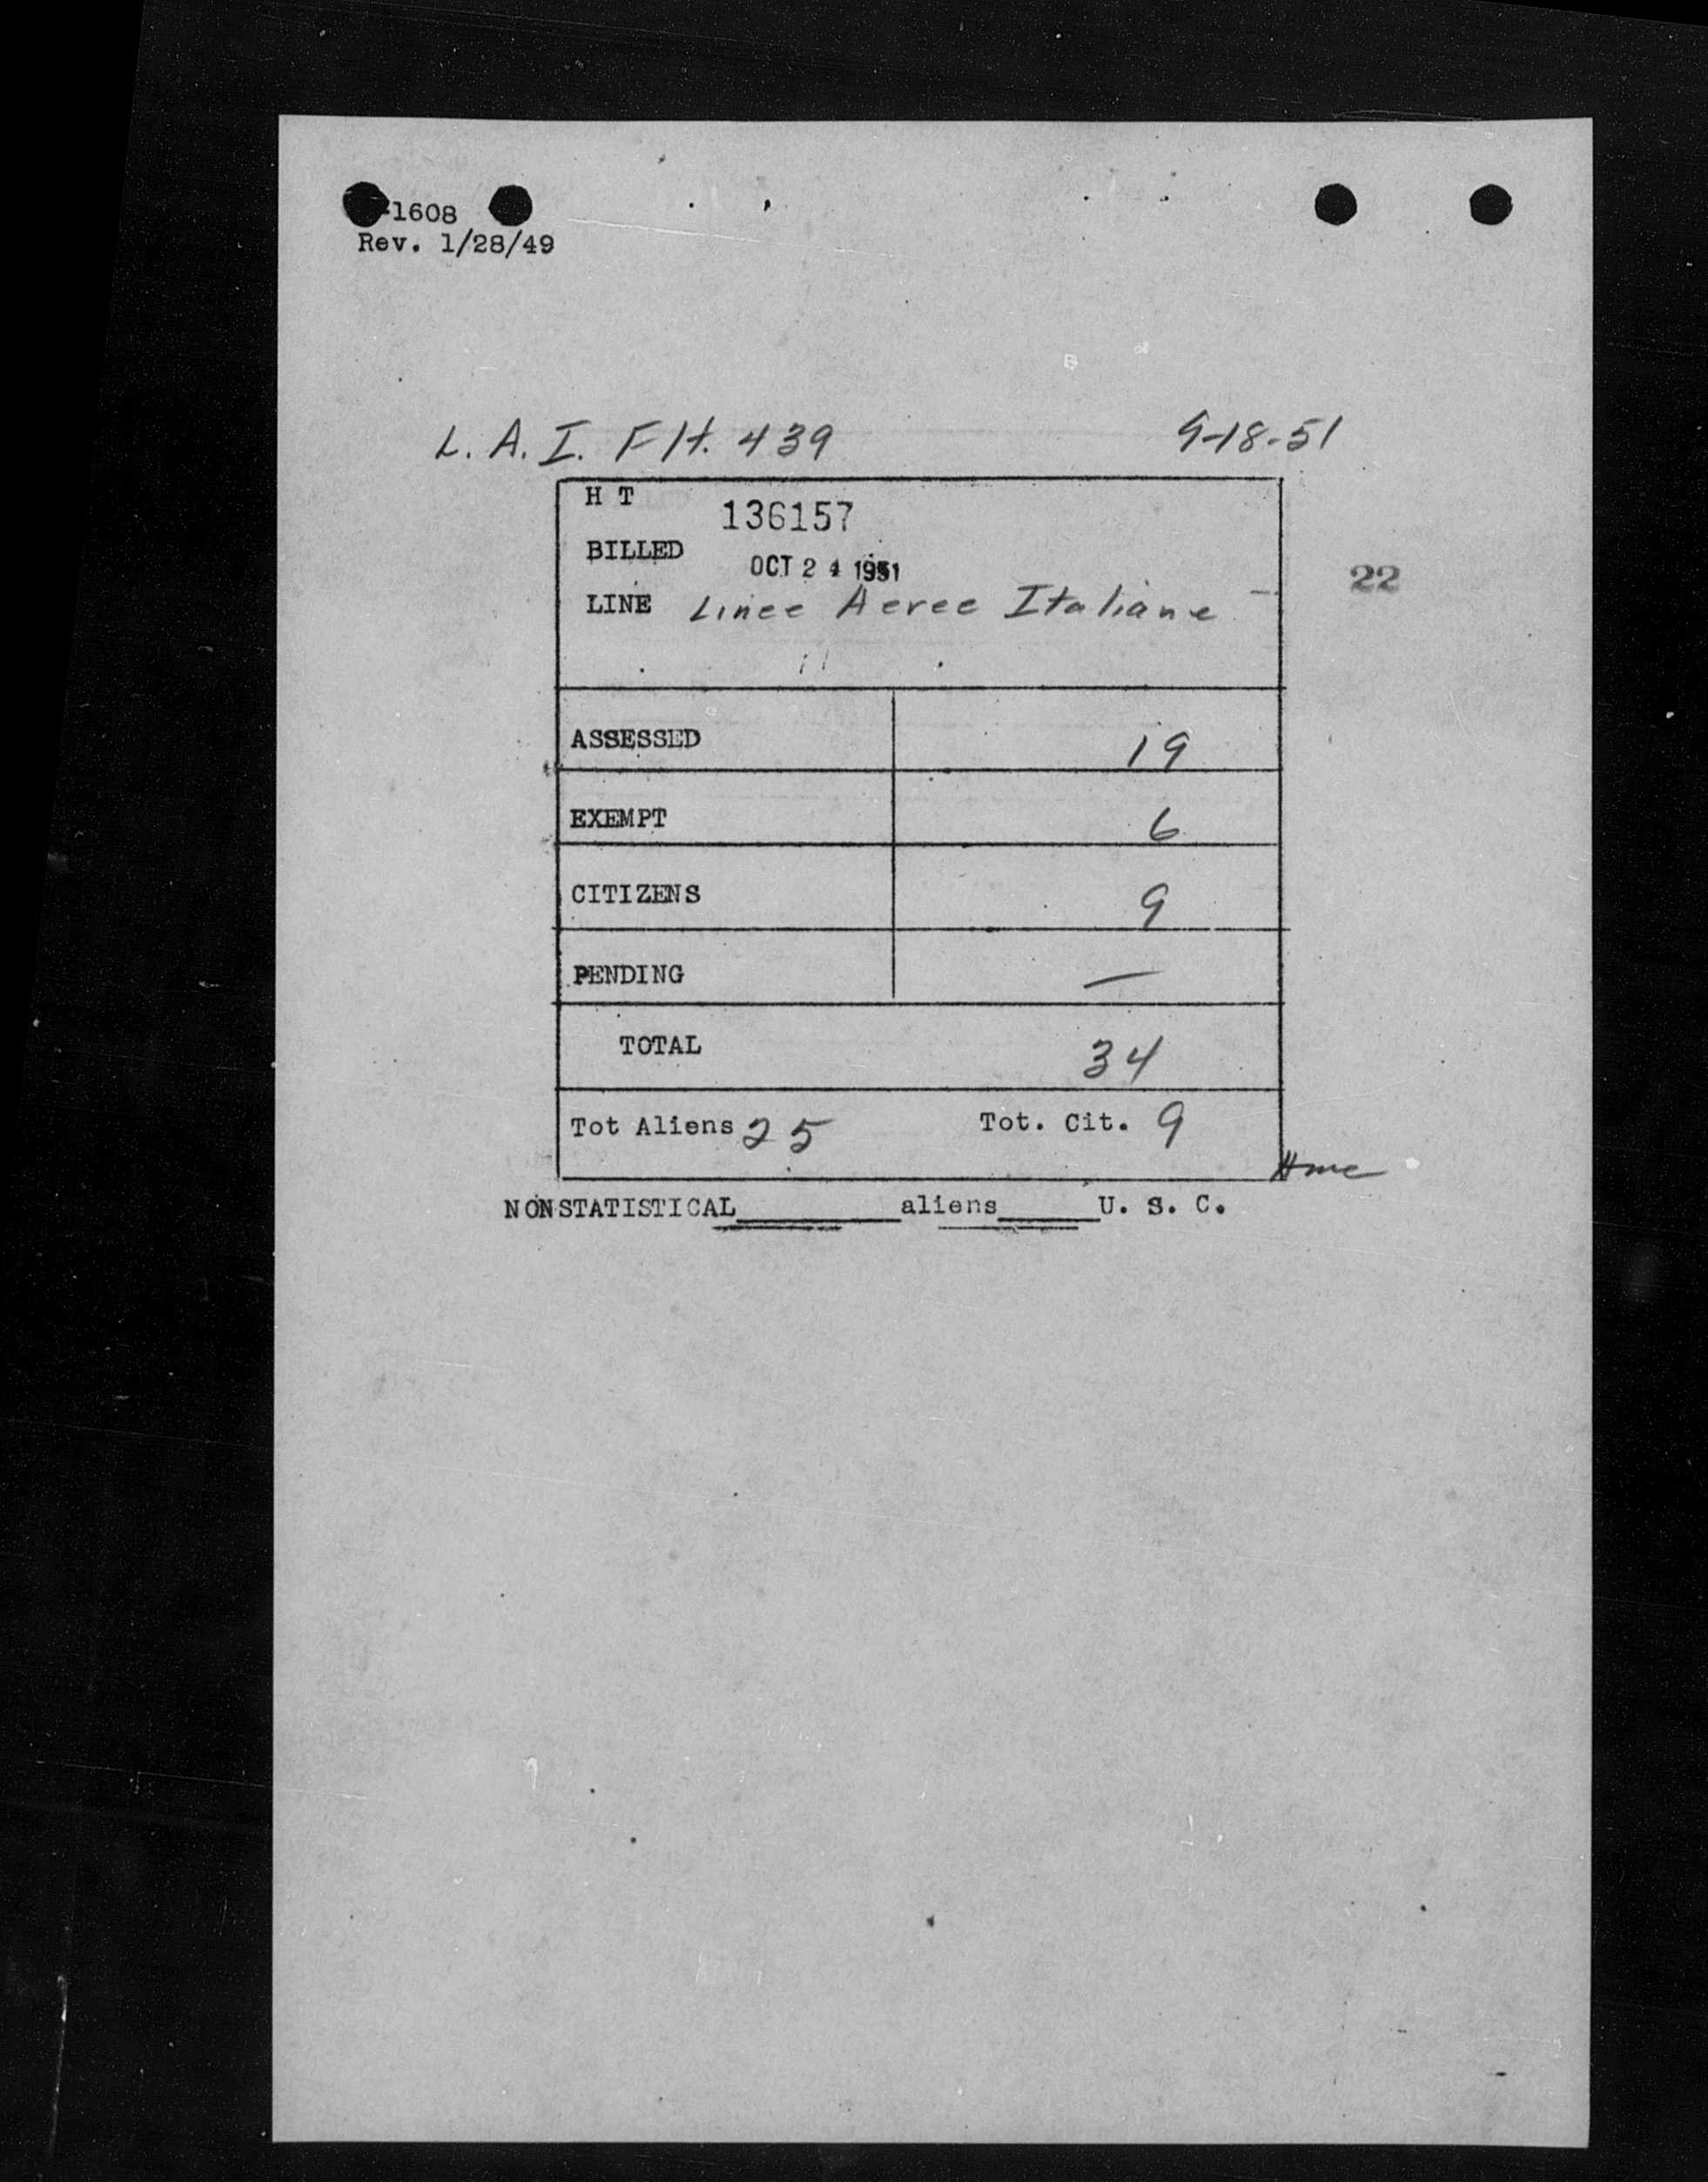 -1608
Rev. 1/28/49
L. A. I. Flt. 439 9-18-51
H T 136157
BILLED OCT 24 1951
22
LINE Linee Aeree Italiane
ASSESSED 19
EXEMPT 6
CITIZENS 9
PENDING —
TOTAL 34
Tot Aliens 25 Tot. Cit. 9
NONSTATISTICAL________aliens_____U. S. C.